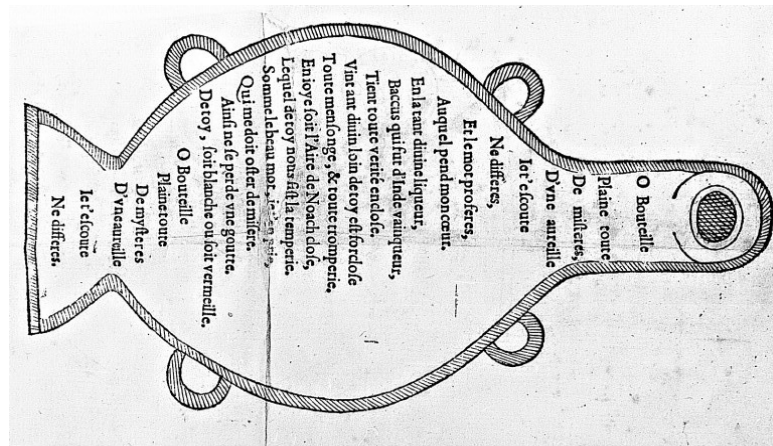 O Bouteille
Plaine toute
De miſteres,
D'vne aureille
Iet'eſcoute
Ne differes,
Et le mot proferes,
Auquel pend mon cœur.
En la tant diuine liqueur,
Baccus qui fut d'Inde vainqueur,
Tient toute verité encloſe.
Vint ant diuin loin de toy eſt forcloſe
Toute menſonge, & toute tromperie.
En ioye ſoit l'Aire de Noach cloſe,
Lequel de toy nous fiſt la temperie.
Somme le beau mot, ie t'en prie,
Qui me doit oſter de miſere.
Ainſi ne ſe perde vne goutte.
De toy, ſoit blanche ou ſoit vermeille.
O Bouteille
Plaine toute
De myſteres
D'vne aureille
Iet'eſcoute
Ne differes.